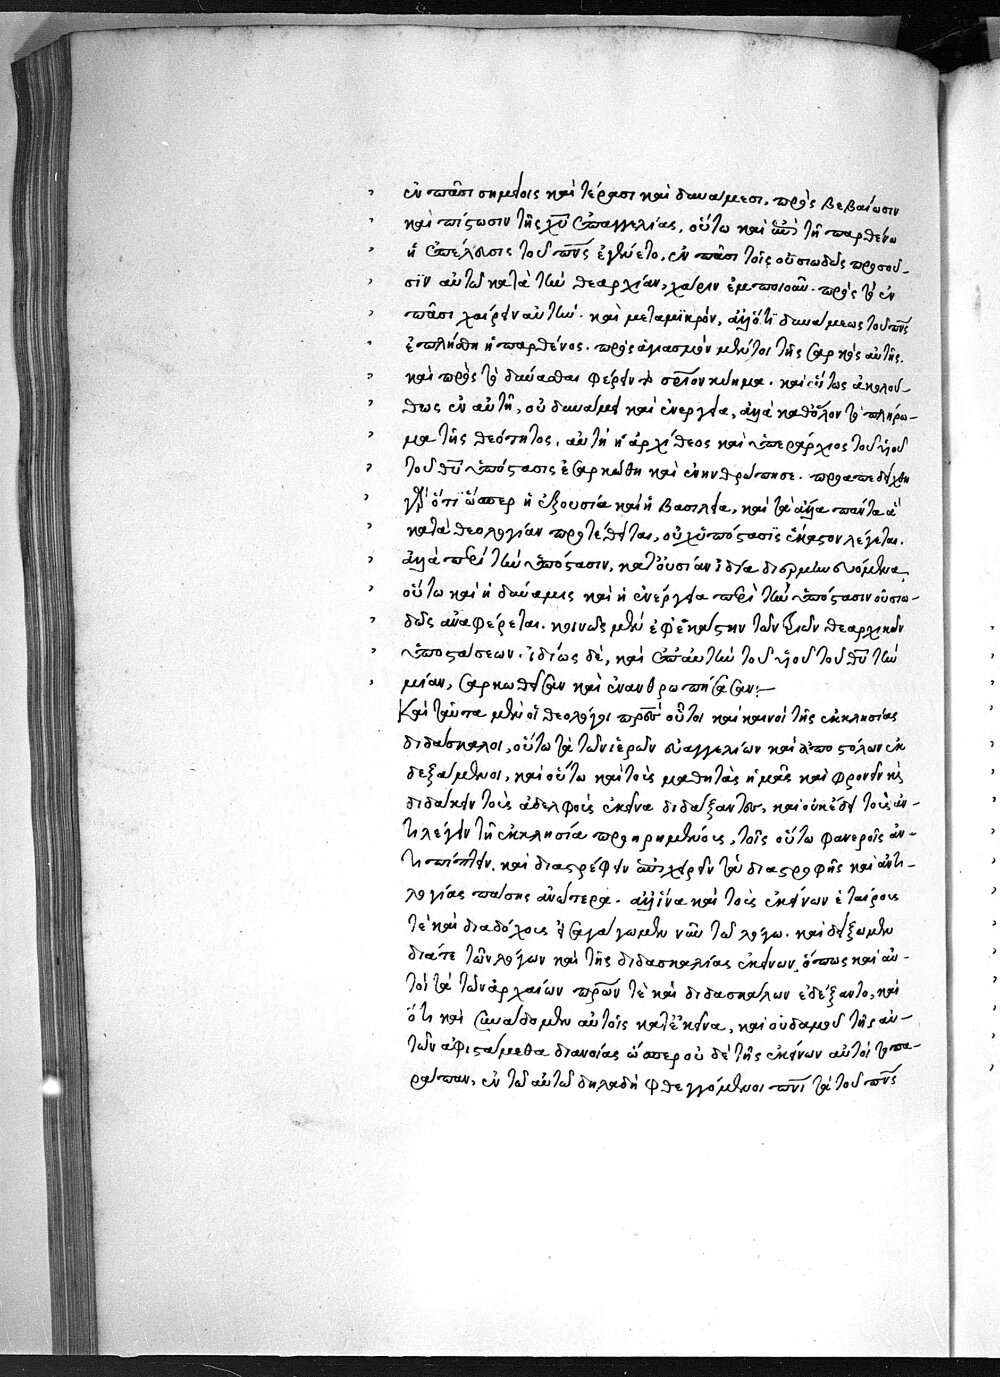 ἐν πᾶσι σημείοις καὶ τέρασι καὶ δυνάμεσι, πρὸς βεβαίωσιν
καὶ πίστωσιν τῆς χυ ἐπαγγελίας, οὕτω καὶ ἐπὶ τῇ παρθένω
ἡ ἐπέλευσις τοῦ πνς ἐγένετο, ἐν πᾶσι τοῖς οὐσιωδῶς προσοῦ-
σιν αὐτῶ κατὰ τὴν θεαρχίαν, χάριν ἐμποιοῦν. πρὸς τὸ ἐν
πᾶσι χαίρειν αὐτήν. καὶ μεταμικρόν, ἀλλότι δυνάμεως τοῦ πνς
ἐπλήσθη ἡ παρθένος. πρὸς ἁγιασμὸν μέντοι τῆς σαρκὸς αὐτῆς.
καὶ πρὸς τὸ δύνασθαι φέρειν τὸ θεῖον κύημα. καὶ οὕτως ἀκολού-
θως ἐν αὐτῆ, οὐ δυνάμει καὶ ἐνεργεία, ἀλλὰ καθόλον τὸ πλήρω-
μα τῆς θεότητος, αὐτὴ ἡ ἀρχίθεος καὶ ὑπεράρχιος τοῦ υἱοῦ
τοῦ θυ ὑπόστασις ἐσαρκώθη καὶ ἐνηνθρώπησε. προαπεδείχθη
γὰρ ὅτι ὥσπερ ἡ ἐξουσία καὶ ἡ βασιλεία, καὶ τὰ ἄλλα πάντα ἃ
κατὰ θεολογίαν προτέθειται, οὐχ ὑπόστασις ἕκαστον λέγεται.
ἀλλὰ περὶ τὴν ὑπόστασιν, κατ' οὐσίαν ἰδία
οὕτω καὶ ἡ δύναμις καὶ ἡ ἐνέργεια περὶ τὴν ὑπόστασιν οὐσιω-
δῶς ἀναφέρεται. κοινῶς μὲν ἐφ' ἑκάστην τῶν τριῶν θεαρχικῶν
ὑποστάσεων. ἰδίως δὲ, καὶ ἐπ' αὐτὴν τοῦ υἱοῦ τοῦ θυ τὴν
μίαν, σαρκωθεῖσαν καὶ ἐνανθρωπήσασαν:~
Καὶ ταῦτα μὲν οἱ θεολόγοι πρες οὗτοι καὶ κοινοὶ τῆς ἐκκλησίας
διδάσκαλοι, οὕτω τὰ τῶν ἱερῶν εὐαγγελίων καὶ ἀποστόλων ἐκ
δεξάμενοι, καὶ οὕτω καὶ τοὺς μαθητὰς ἡμᾶς καὶ φρονεῖν κ
διδάσκειν τοὺς ἀδελφοὺς ἐκεῖνα διδάξαντες, καὶ οὐκ ἔδει τοὺς ἀν-
τιλέγειν τῆ ἐκκλησία προηρημένους, τοῖς οὕτω φανεροῖς ἀν-
τιπίπτειν, καὶ διαστρέφειν ἐπιχειρεῖν τὰ διαστροφῆς καὶ ἀντι-
λογίας πάσης ἀνώτερα. ἀλλ' ἵνα καὶ τοὺς ἐκείνων ἑταίρους
τὲ καὶ διαδόχους εἰσαγάγωμεν νῦν τῶ λόγω. καὶ δείξωμεν
διάτε τῶν λόγων καὶ τῆς διδασκαλίας ἐκείνων, ὅπως καὶ αὐ-
τοὶ τὰ τῶν ἀρχαίων πρων τὲ καὶ διδασκάλων ἐδέξαντο, καὶ
ὅτι καὶ συνάδομεν αὐτοῖς κατ' ἐκεῖνα, καὶ οὐδαμοῦ τῆς αὐ-
τῶν ἀφιστάμεθα διανοίας ὥσπερ οὐ δὲ τῆς ἐκείνων αὐτοὶ τοπα-
ράπαν, ἐν τῶ αὐτῶ δηλαδὴ φθεγγόμενοι πνι τὰ τοῦ πνς